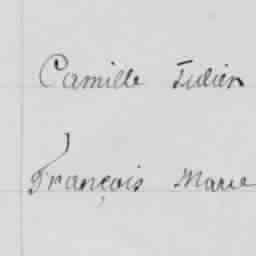 Camille Julien
François Marie